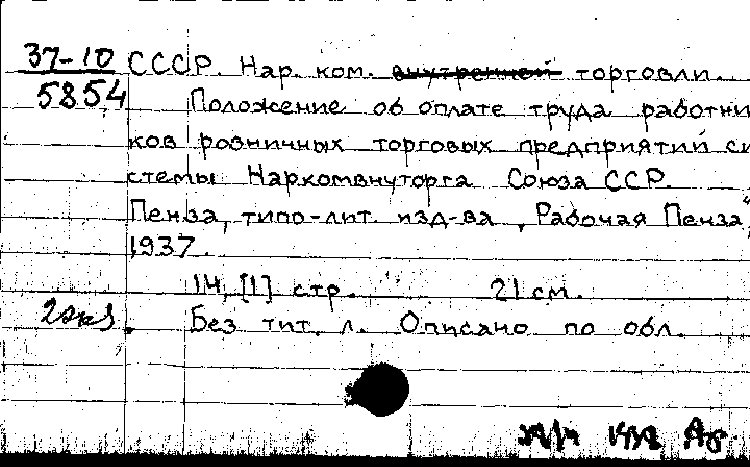 37-10
5854
СССР. Нар. ком. внутренней торговли.
Положение об оплате труда работни
ков розничных торговых предприятий си
стемы Наркомвнуторга Союза ССР.
Пенза, типо-лит. изд-ва „Рабочая Пенза",
1937.
14, [1] стр. 21 см.
2 экз. Без тит. л. Описано по обл.